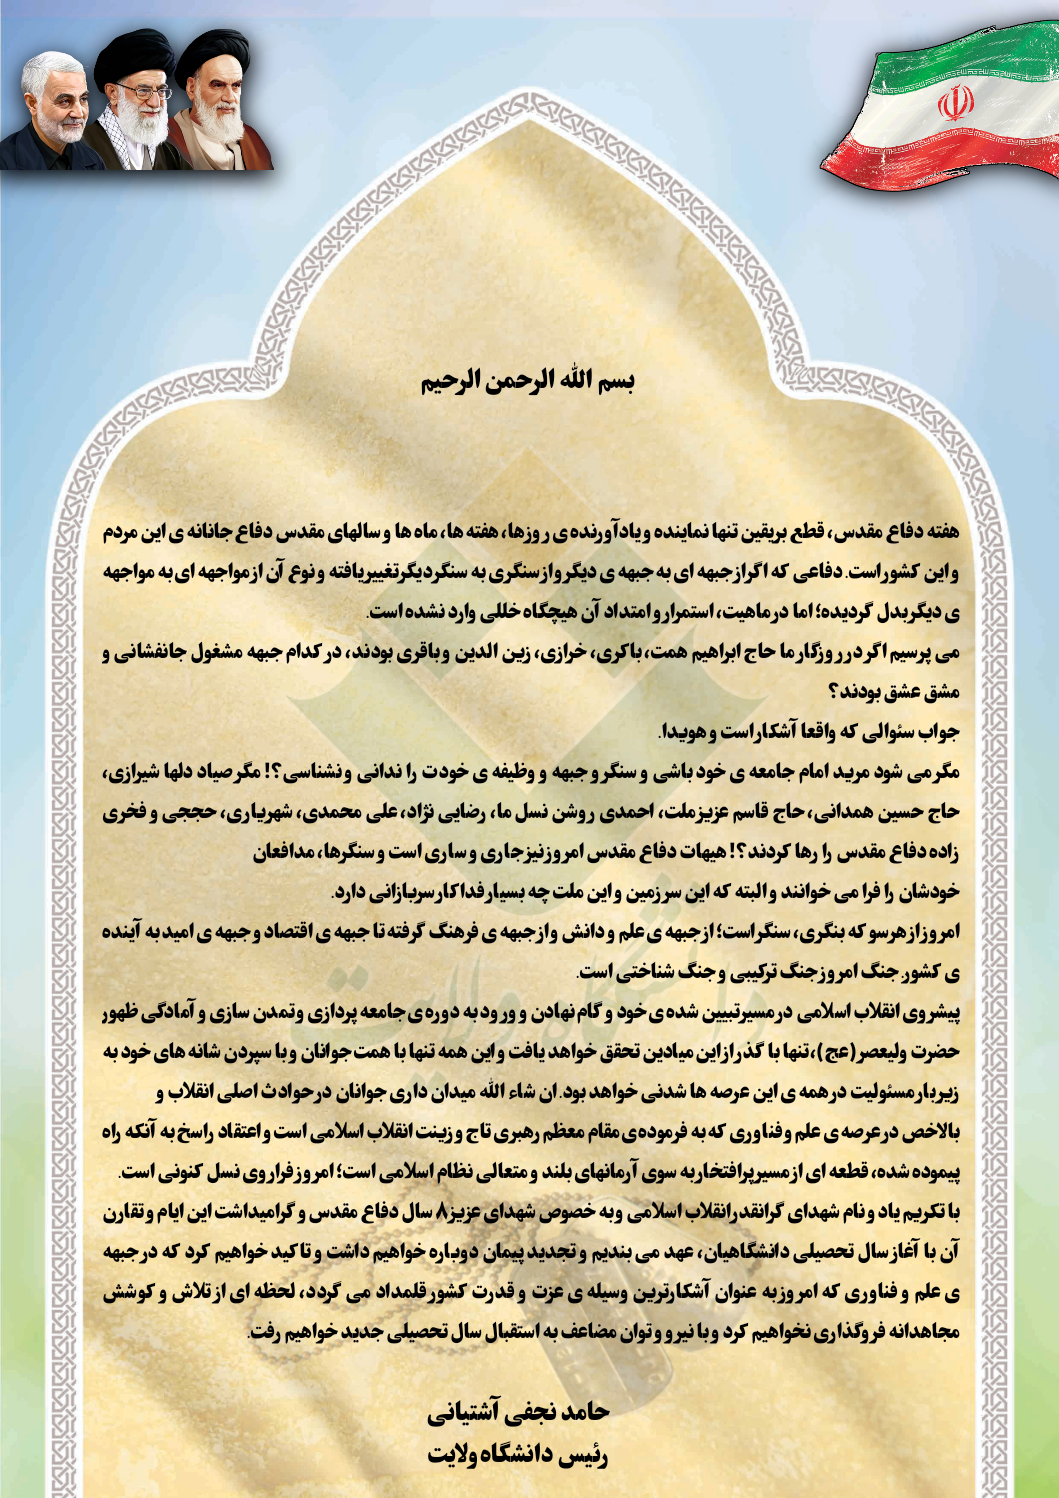 بسم الله الرحمن الرحیم
هفته دفاع مقدس، قطع بریقین تنها نماینده و یادآورنده ی روزها، هفته ها، ماه ها و سالهای مقدس دفاع جانانه ی این مردم
و این کشور است. دفاعی که اگر از جبهه ای به جبهه ی دیگر و از سنگری به سنگر دیگر تغییر یافته و نوع آن از مواجهه ای به مواجهه
ی دیگر بدل گردیده؛ اما در ماهیت، استمرار و امتداد آن هیچگاه خللی وارد نشده است.
می پرسیم اگر در روزگار ما حاج ابراهیم همت، باکری، خرازی، زین الدین و باقری بودند، در کدام جبهه مشغول جانفشانی و
مشق عشق بودند؟
جواب سئوالی که واقعا آشکار است و هویدا.
مگر می شود مرید امام جامعه ی خود باشی و سنگر و جبهه و وظیفه ی خودت را ندانی و نشناسی؟! مگر صیاد دلها شیرازی،
حاج حسین همدانی، حاج قاسم عزیز ملت، احمدی روشن نسل ما، رضایی نژاد، علی محمدی، شهریاری، حججی و فخری
زاده دفاع مقدس را رها کردند؟! هیهات دفاع مقدس امروز نیز جاری و ساری است و سنگرها، مدافعان
خودشان را فرا می خوانند و البته که این سرزمین و این ملت چه بسیار فداکار سربازانی دارد.
امروز از هرسو که بنگری، سنگر است؛ از جبهه ی علم و دانش و از جبهه ی فرهنگ گرفته تا جبهه ی اقتصاد و جبهه ی امید به آینده
ی کشور. جنگ امروز جنگ ترکیبی و جنگ شناختی است.
پیشروی انقلاب اسلامی در مسیر تبیین شده ی خود و گام نهادن و ورود به دوره ی جامعه پردازی و تمدن سازی و آمادگی ظهور
حضرت ولیعصر (عج)، تنها با گذر از این میادین تحقق خواهد یافت و این همه تنها با همت جوانان و با سپردن شانه های خود به
زیر بار مسئولیت در همه ی این عرصه ها شدنی خواهد بود. ان شاء الله میدان داری جوانان در حوادث اصلی انقلاب و
بالاخص در عرصه ی علم و فناوری که به فرموده ی مقام معظم رهبری تاج و زینت انقلاب اسلامی است و اعتقاد راسخ به آنکه راه
پیموده شده، قطعه ای از مسیر پرافتخار به سوی آرمانهای بلند و متعالی نظام اسلامی است؛ امروز فراروی نسل کنونی است.
با تکریم یاد و نام شهدای گرانقدر انقلاب اسلامی و به خصوص شهدای عزیز ۸ سال دفاع مقدس و گرامیداشت این ایام و تقارن
آن با آغاز سال تحصیلی دانشگاهیان، عهد می بندیم و تجدید پیمان دوباره خواهیم داشت و تاکید خواهیم کرد که در جبهه
ی علم و فناوری که امروز به عنوان آشکارترین وسیله ی عزت و قدرت کشور قلمداد می گردد، لحظه ای از تلاش و کوشش
مجاهدانه فروگذاری نخواهیم کرد و با نیرو و توان مضاعف به استقبال سال تحصیلی جدید خواهیم رفت.
حامد نجفی آشتیانی
رئیس دانشگاه ولایت